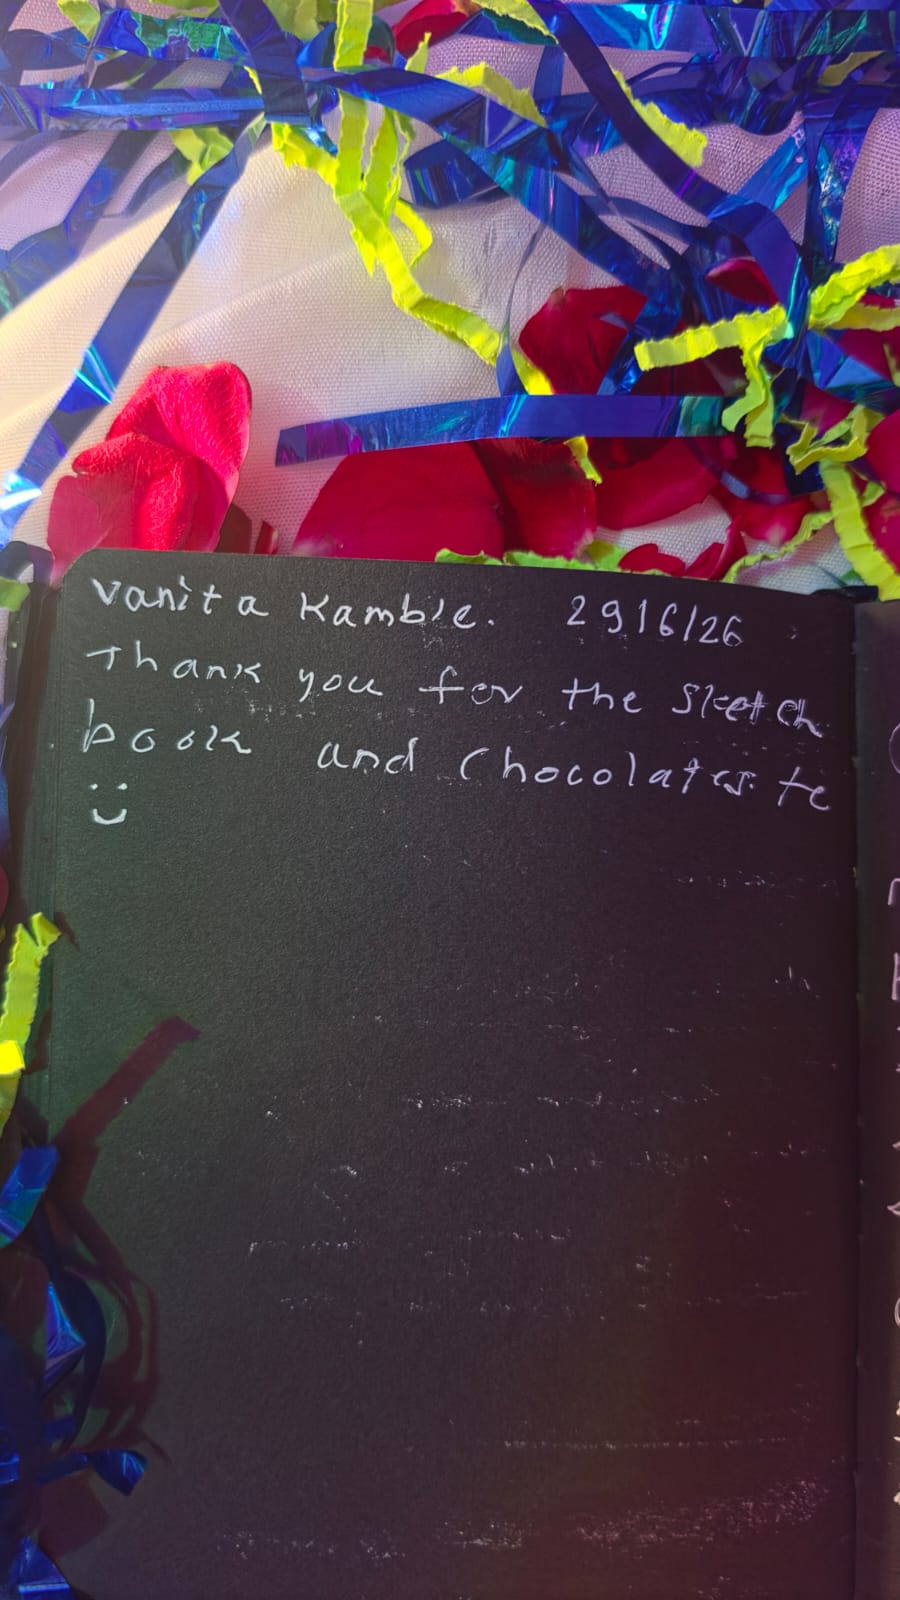 Vanita Kamble. 29/6/26
Thank you for the Sketch
book and Chocolates. te
:)